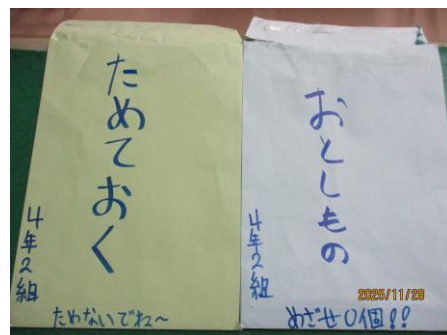 ためておく
4年2組
ためないでね〜
おとしもの
4年2組
めざせ0個!!
2025/11/28